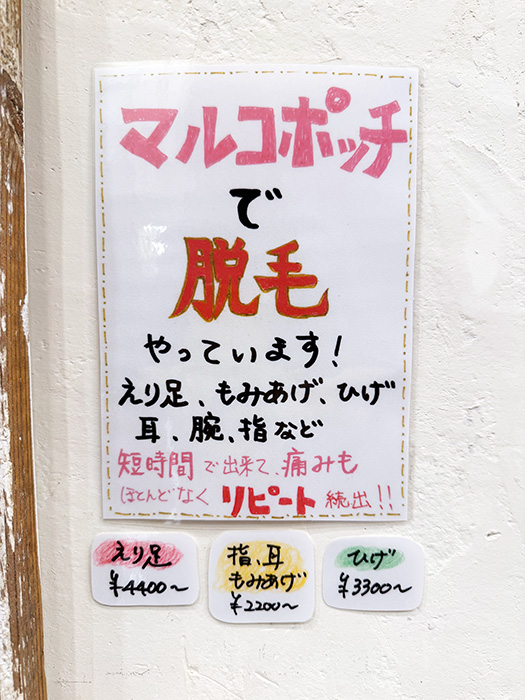 マルコポッチ
で
脱毛
やっています!
えり足、もみあげ、ひげ
耳、腕、指など
短時間で出来て、痛みも
ほとんどなく リピート 続出!!
えり足
¥4400~
指、耳
もみあげ
¥2200~
ひげ
¥3300~